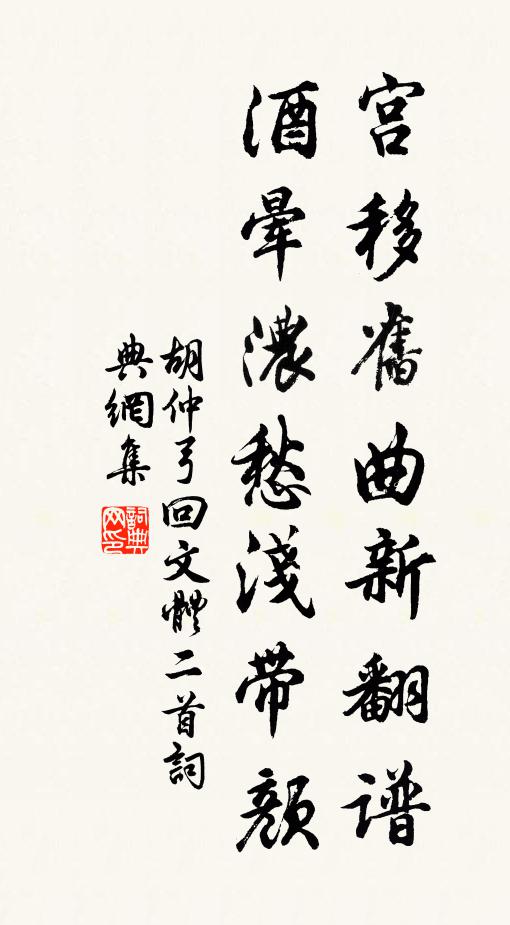 宫移舊曲新翻谱
酒暈濃愁淺带顏
胡仲弓回文體二首詞
典網集
詞典网印